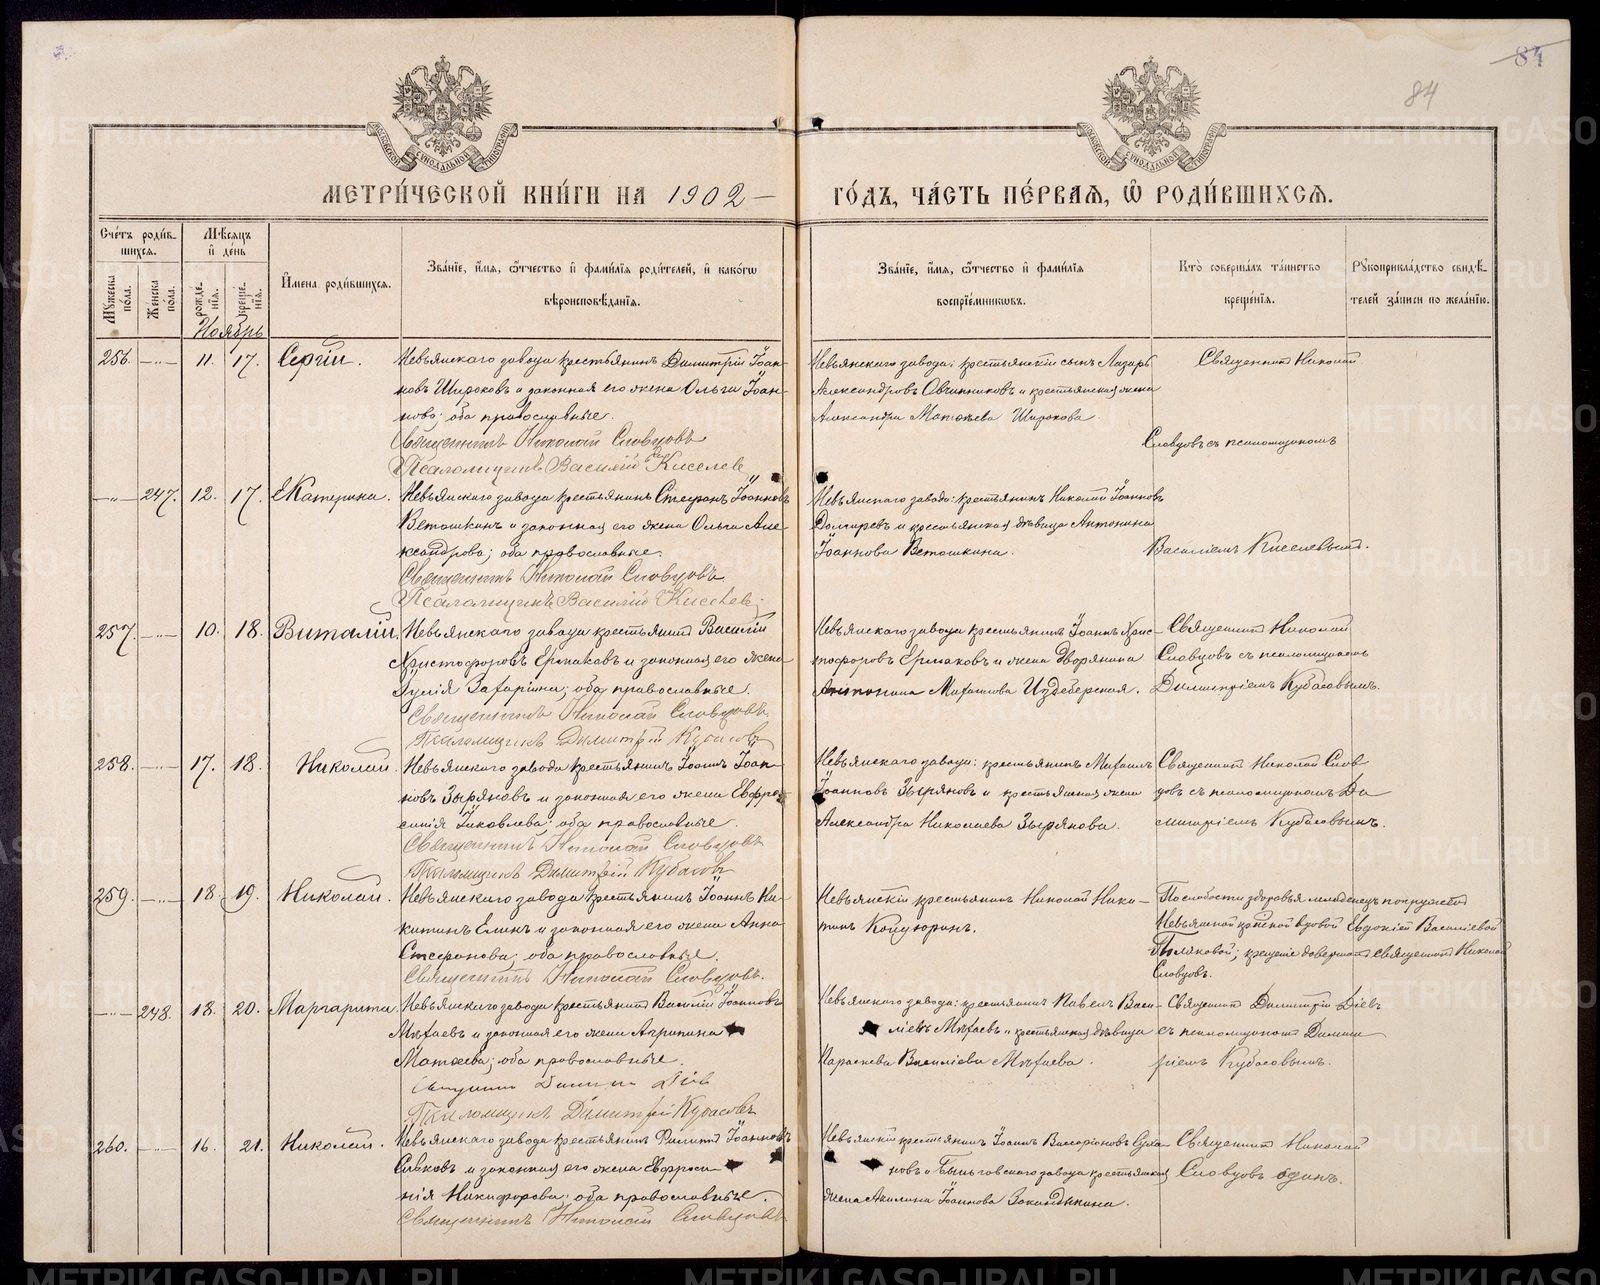 84
84
МЕТРИ́ЧЕСКОЙ КНИ́ГИ НА 1902 –
ГО́ДЪ, ЧА́СТЬ ПЕ́РВАЯ, Ѡ РОДИ́ВШИХСЯ.
Счётъ роди́в-
шихся.
Мѣсяцъ
и де́нь
Мꙋжеска по́ла.
Же́нска по́ла.
рожде́нїя.
креще́нїя.
И́мена роди́вшихся.
Зва́нїе, и́мя, ѻ́тчество и фами́лїя роди́телей, и како́гѡ
вѣроисповѣ́данїя.
Зва́нїе, и́мя, ѻ́тчество и фами́лїя
воспрїе́мникѡвъ.
Кто̀ соверша́лъ та́инство
креще́нїя.
Рꙋкоприкла́дство свидѣ́-
телей за́писи по жела́нїю.
Ноябрь
256. —„— 11. 17. Сергій.
Невьянскаго завода крестьянинъ Димитрій Іоан-
новъ Широковъ и законная его жена Ольга Іоан-
нова; оба православные.
Священникъ Николай Словцовъ
Псаломщикъ Василій Киселев
Невьянскаго завода: крестьянскій сынъ Лазарь
Александровъ Овчинниковъ и крестьянская жена
Александра Матѳѣева Широкова.
Священникъ Николай
Словцовъ съ псаломщикомъ
—„— 247. 12. 17. Екатерина.
Невьянскаго завода крестьянинъ Стефанъ Іоанновъ
Ветошкинъ и законная его жена Ольга Але-
ксандрова; оба православные.
Священникъ Николай Словцовъ
Псаломщикъ Василій Киселев
Невьянскаго завода: крестьянинъ Николай Іоанновъ
и крестьянская дѣвица Антонина
Іоаннова Ветошкина.
Василіемъ Киселевымъ.
257. —„— 10. 18. Виталій.
Невьянскаго завода крестьянинъ Василій
Христофоровъ Ермаковъ и законная его жена
Іулія Захаріина; оба православные.
Священникъ Николай Словцовъ
Псаломщикъ Димитрій Кубасовъ
Невьянскаго завода крестьянинъ Іоаннъ Хрис-
тофоровъ Ермаковъ и жена дворянина
Антонина Михаилова Издеберская.
Священникъ Николай
Словцовъ съ псаломщикомъ
Димитріемъ Кубасовымъ.
258. —„— 17. 18. Николай.
Невьянскаго завода крестьянинъ Іоаннъ Іоан-
новъ Зыряновъ и законная его жена Евфро-
синія Іаковлева; оба православные.
Священникъ Николай Словцовъ
Псаломщикъ Димитрій Кубасовъ
Невьянскаго завода: крестьянинъ Михаилъ
Іоанновъ Зыряновъ и крестьянская жена
Александра Николаева Зырянова.
Священникъ Николай Слов-
цовъ съ псаломщикомъ Ди-
митріемъ Кубасовымъ.
259. —„— 18. 19. Николай.
Невьянскаго завода крестьянинъ Іоаннъ Ни-
китинъ Елинъ и законная его жена Анна
Стефанова; оба православные.
Священникъ Николай Словцовъ.
Невьянскій крестьянинъ Николай Ники-
тинъ
По слабости здоровья младенецъ погруженъ
Невьянской вдовой Евдокіей Василіевой
Поляковой; крещеніе довершилъ священникъ Николай
Словцовъ.
—„— 248. 18. 20. Маргарита.
Невьянскаго завода крестьянинъ Василій Іоанновъ
Михаевъ и законная его жена Агрипина
Матѳеева; оба православные.
Священникъ Димитрій Діевъ
Псаломщикъ Димитрій Кубасовъ
Невьянскаго завода: крестьянинъ Павелъ Васи-
ліевъ Михаевъ и крестьянская дѣвица
Параскева Василіева Михаева.
Священникъ Димитрій Діевъ
съ псаломщикомъ Димит-
ріемъ Кубасовымъ.
260. —„— 16. 21. Николай.
Невьянскаго завода крестьянинъ Филиппъ Іоанновъ
Сивковъ и законная его жена Евфроси-
нія Никифорова; оба православные.
Священникъ Николай Словцовъ
Невьянскій крестьянинъ Іоаннъ Виссаріоновъ Суха-
новъ и Быньговскаго завода крестьянская
жена Акилина Іоаннова
Священникъ Николай
Словцовъ одинъ.